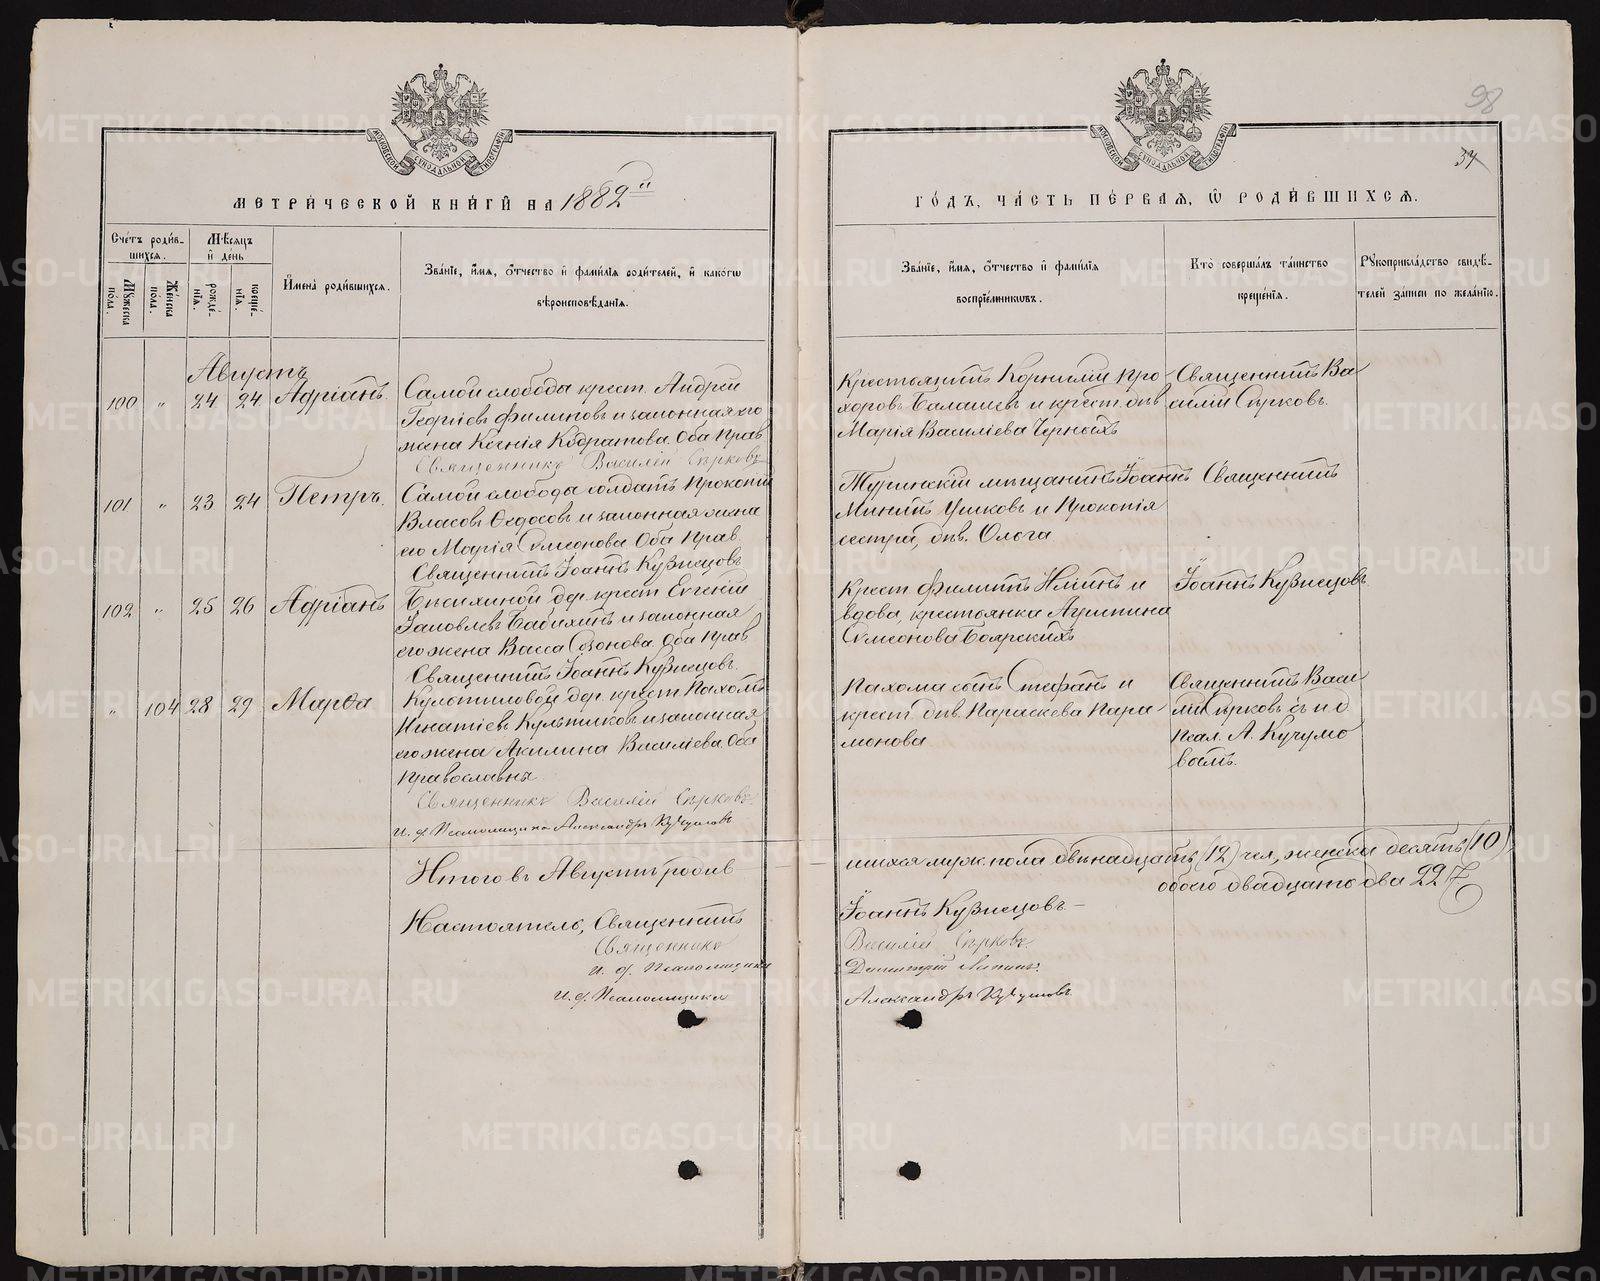 МЕТРИЧЕСКОЙ КНИГИ НА 1882й
Счетъ родив-
шихся.
Мѣсяцъ
и день
Мужеска
пола.
Женска
пола.
рожде-
нія.
креще-
нія.
Имена родившихся.
Званіе, имя, отчество и фамилія родителей, и какого
вѣроисповѣданія.
Августъ
100 " 24 24 Адріанъ
Самой слободы крест. Андрей
Георгіев Филиповъ и законная его
жена Ксенія Кодратова. Оба прав.
Священникъ Василій Сѣрковъ
101 " 23 24 Петръ.
Самой слободы солдатъ Прокопій
Власовъ Ѳедосовъ и законная жена
его Марія Симеонова. Оба прав.
Священникъ Іоаннъ Кузнецовъ
102 " 25 26 Адріанъ
дер. крест. Евгеній
Іаковлевъ Бабихинъ и законная
его жена Васса Созонова. Оба прав.
Священникъ Іоаннъ Кузнецовъ.
" 104 28 29 Марѳа
дер. крест. Пахомъ
Игнатіев и законная
его жена Акилина Василіева. Оба
православны
Священникъ Василій Сѣрковъ
И. д. Псаломщика Александръ Кучумовъ
Итого въ Августѣ родив-
Настоятель, Священникъ
Священникъ
и. д. Псаломщика
И. д. Псаломщика
98
34
ГОДЪ, ЧАСТЬ ПЕРВАЯ, Ѡ РОДИВШИХСЯ.
Званіе, имя, отчество и фамилія
воспріемниковъ.
Кто совершалъ таинство
крещенія.
Рукоприкладство свидѣ-
телей записи по желанію.
Крестьянинъ Корнилій Про-
хоровъ Балашевъ и крест. дѣв.
Марія Василіева Черныхъ
Священникъ Ва
силій Сѣрковъ.
Туринскій мѣщанинъ Іоаннъ
Ушковъ и Прокопія
сестра, дѣв. Ольга
Священникъ
Іоаннъ Кузнецовъ
Крест. Филиппъ и
вдова, крестьянка
Симеонова Боярскихъ
Пахома сынъ Стефанъ и
крест. дѣв. Параскева Пара-
монова
Священникъ Васи
лій Сѣрковъ съ и д.
псал. А. Кучумо
вымъ.
шихся муж. пола двѣнадцать (12) чел., женска десять (10),
обоего двадцать два 22
Іоаннъ Кузнецовъ
Василій Сѣрковъ
Димитрій
Александръ Кучумовъ
METRIKI.GASO-URAL.RU
МОСКОВСКОЙ СѴНОДАЛЬНОЙ ТИПОГРАФІИ